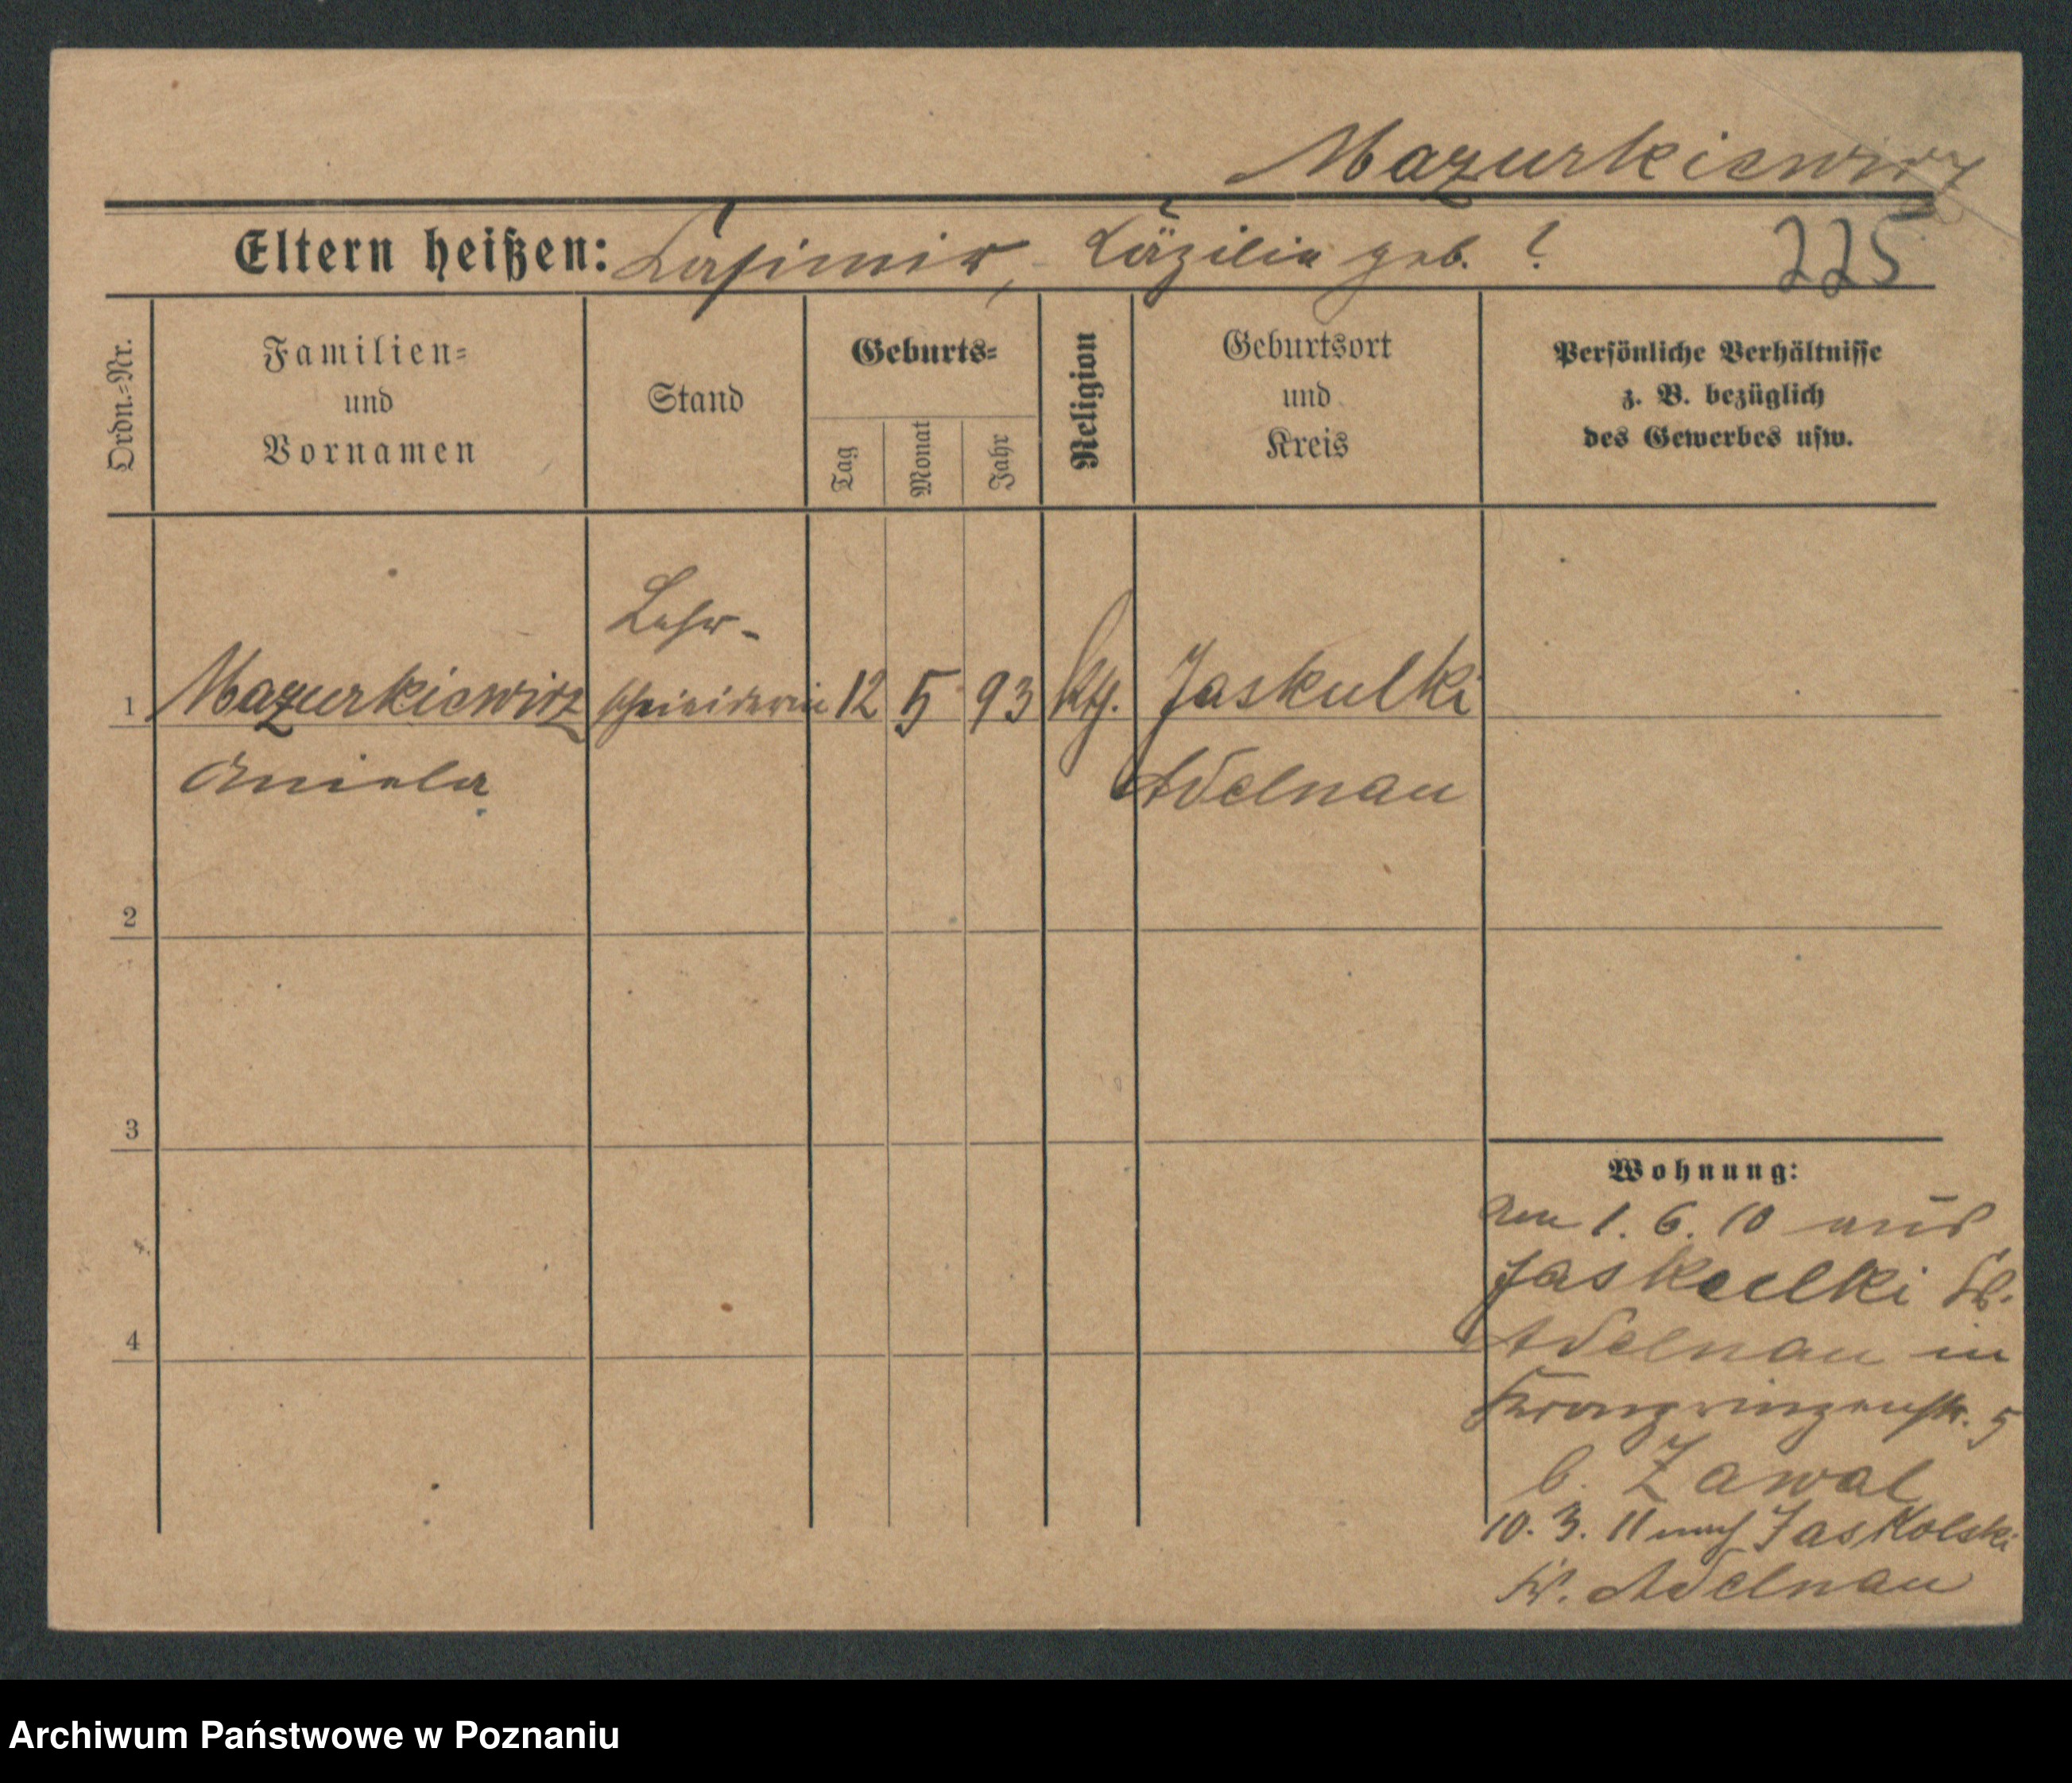 Mazurkiewicz
Eltern heißen: Casimir, Cäzilia geb. ?
225
Ordn.=Nr.
Familien=
und
Vornamen
Stand
Geburts=
Tag
Monat
Jahr
Religion
Geburtsort
und
Kreis
Persönliche Verhältnisse
z. B. bezüglich
des Gewerbes usw.
Lehr-
1 Mazurkiewicz schneiderin 12 5 93 kth. Jaskulki
Aniela Adelnau
2
3
4
Wohnung:
Am 1. 6. 10 aus
Jaskulki Kr.
Adelnau in
Kronprinzenstr. 5
b. Zawal
10. 3. 11 nach Jaskolski
Kr. Adelnau
Archiwum Państwowe w Poznaniu